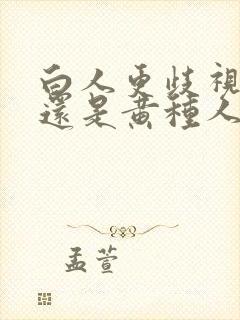 白人更歧視
還是黃種人
孟萱